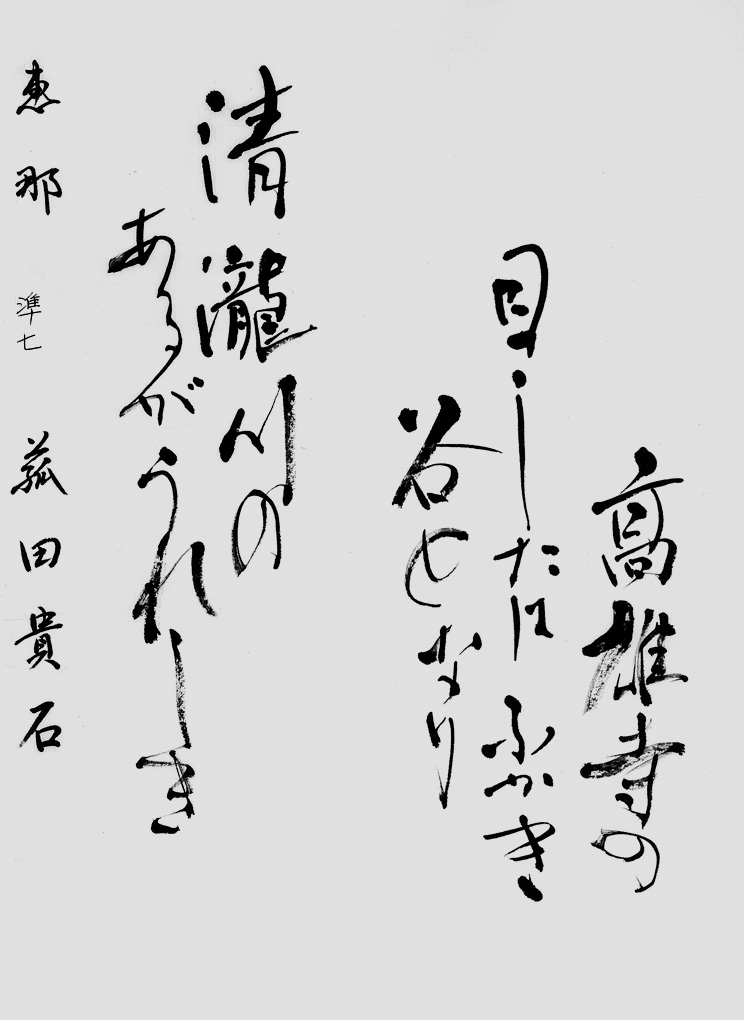 高雄寺の
目したはふかき
谷となり
清瀧川の
あるがうれしき
恵那 準七 菰田貴石